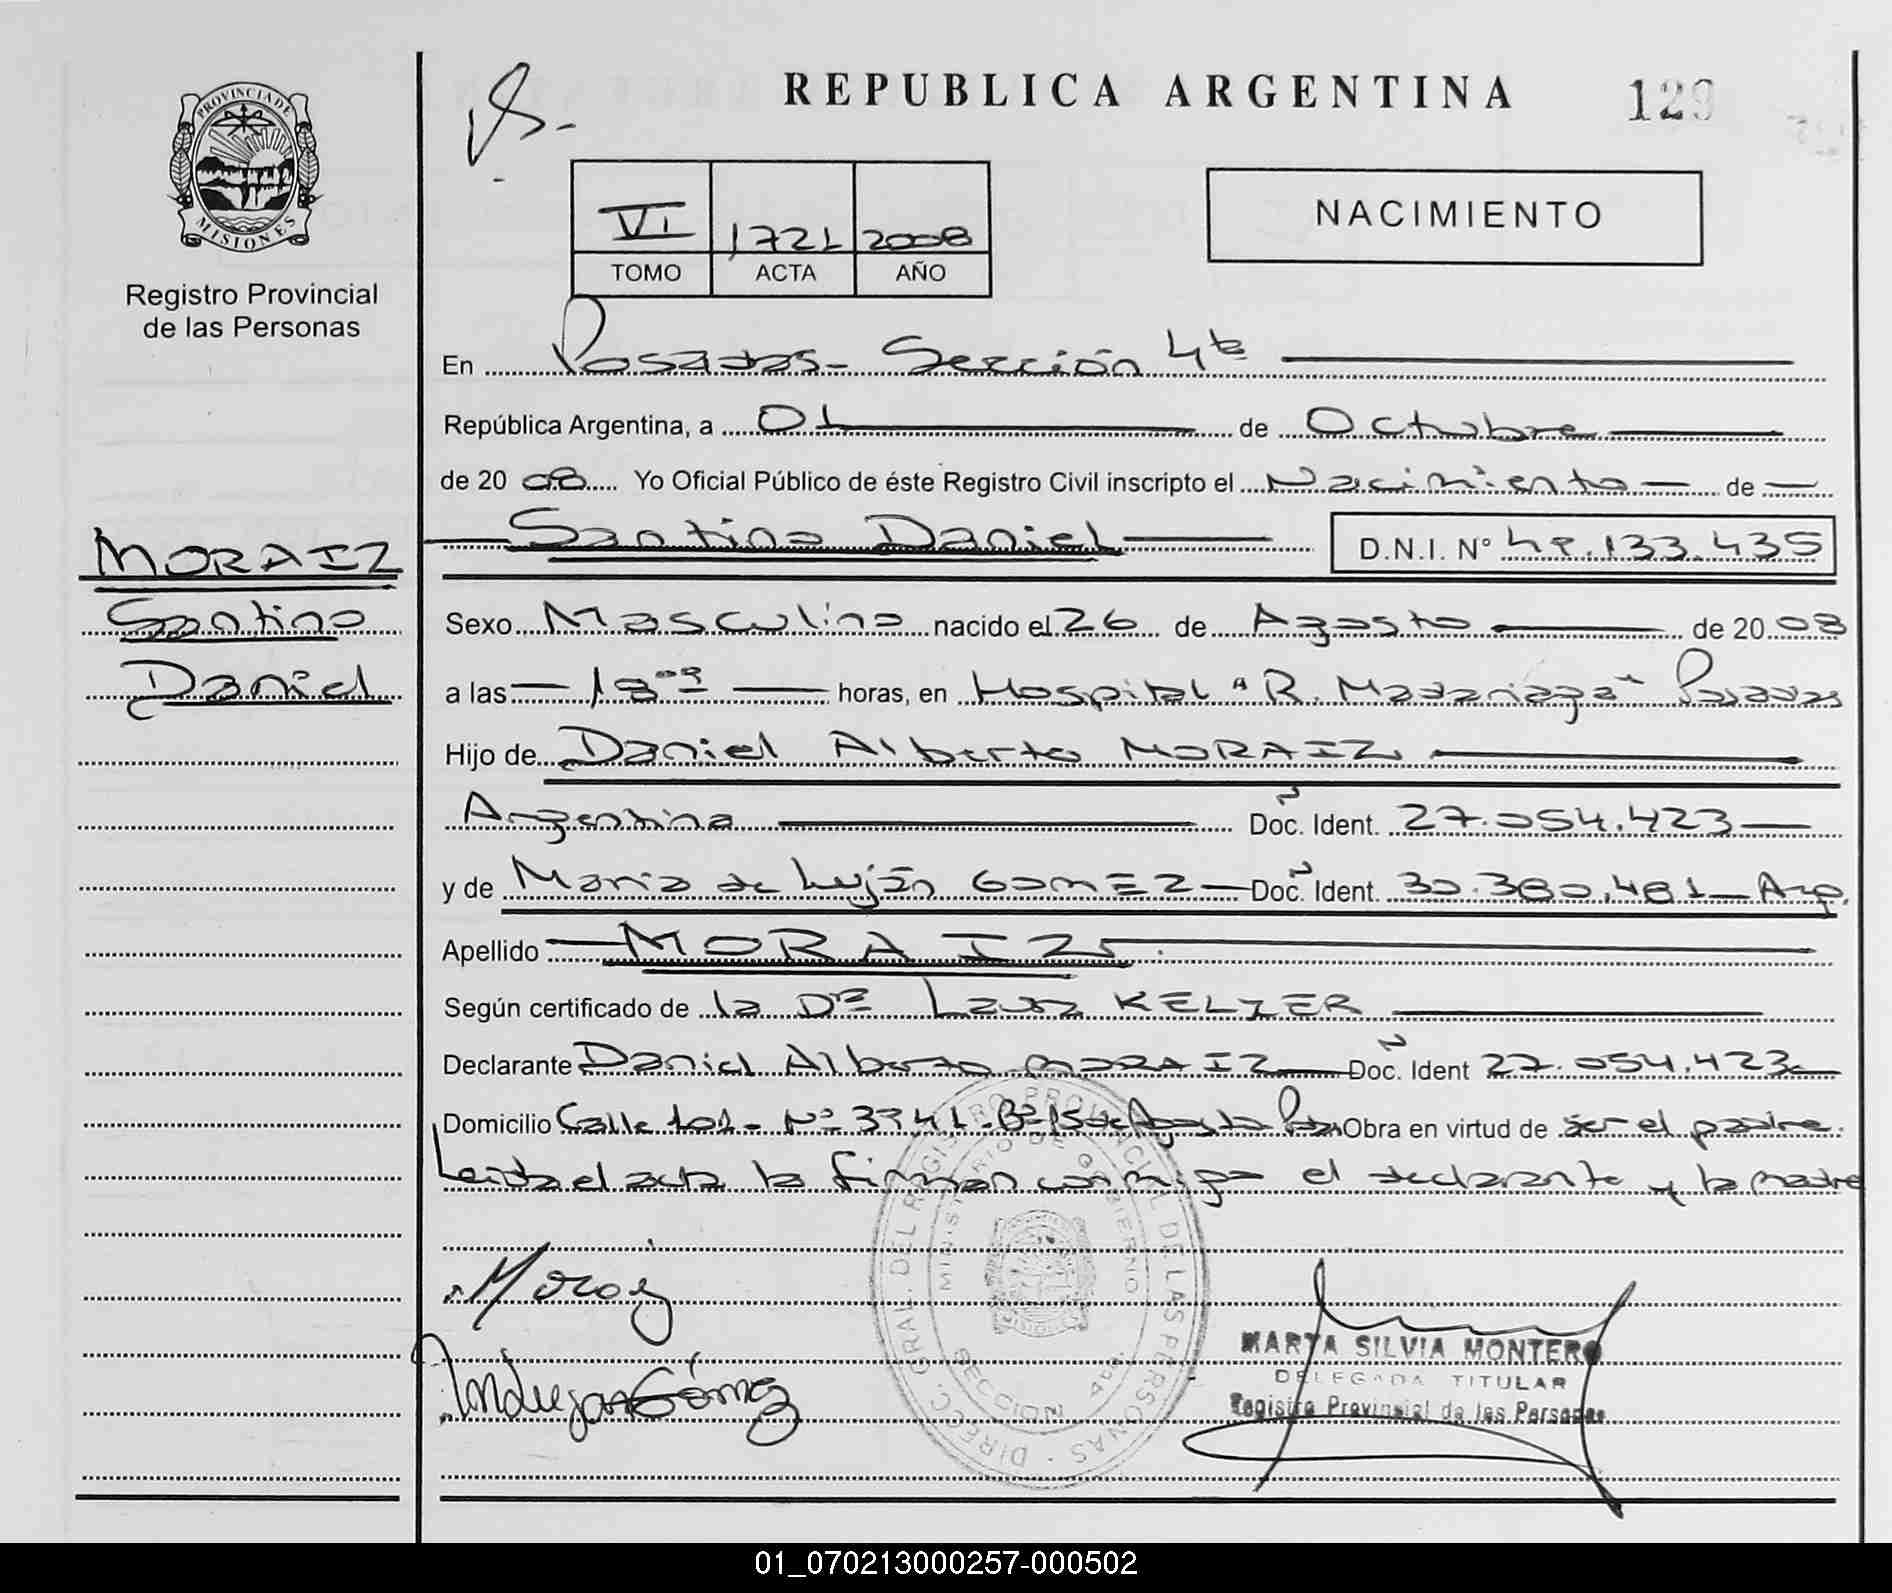 REPUBLICA ARGENTINA
129
PROVINCIA DE
MISIONES
Registro Provincial
de las Personas
VI 1721 2008
TOMO ACTA AÑO
NACIMIENTO
En Posadas - Sección 4ta
República Argentina, a 01 de Octubre
de 20 08 Yo Oficial Público de éste Registro Civil inscripto el Nacimiento de
Santino Daniel D.N.I. N° 49.133.435
MORAIZ
Santino
Daniel
Sexo Masculino nacido el 26 de Agosto de 20 08
a las horas, en Hospital "R. Madariaga" Posadas
Hijo de Daniel Alberto MORAIZ
Argentina Doc. Ident. 27.054.423
y de Maria de Luján GOMEZ Doc. Ident. 30.380.481 Arg.
Apellido MORAIZ
Según certificado de la Dra Laura KELZER
Declarante Daniel Alberto MORAIZ Doc. Ident 27.054.423
Domicilio Calle 101 - Nº 3341 - Bº 15 de Agosto Pdas Obra en virtud de ser el padre.
Leida el acta la firman conmigo el declarante y la madre
DIRECC. GRAL. DEL REGISTRO PROVINCIAL DE LAS PERSONAS
MINISTERIO DE GOBIERNO
SECCION 4ta.
MISIONES
Gómez
MARTA SILVIA MONTERO
DELEGADA TITULAR
Registro Provincial de las Personas
01_070213000257-000502